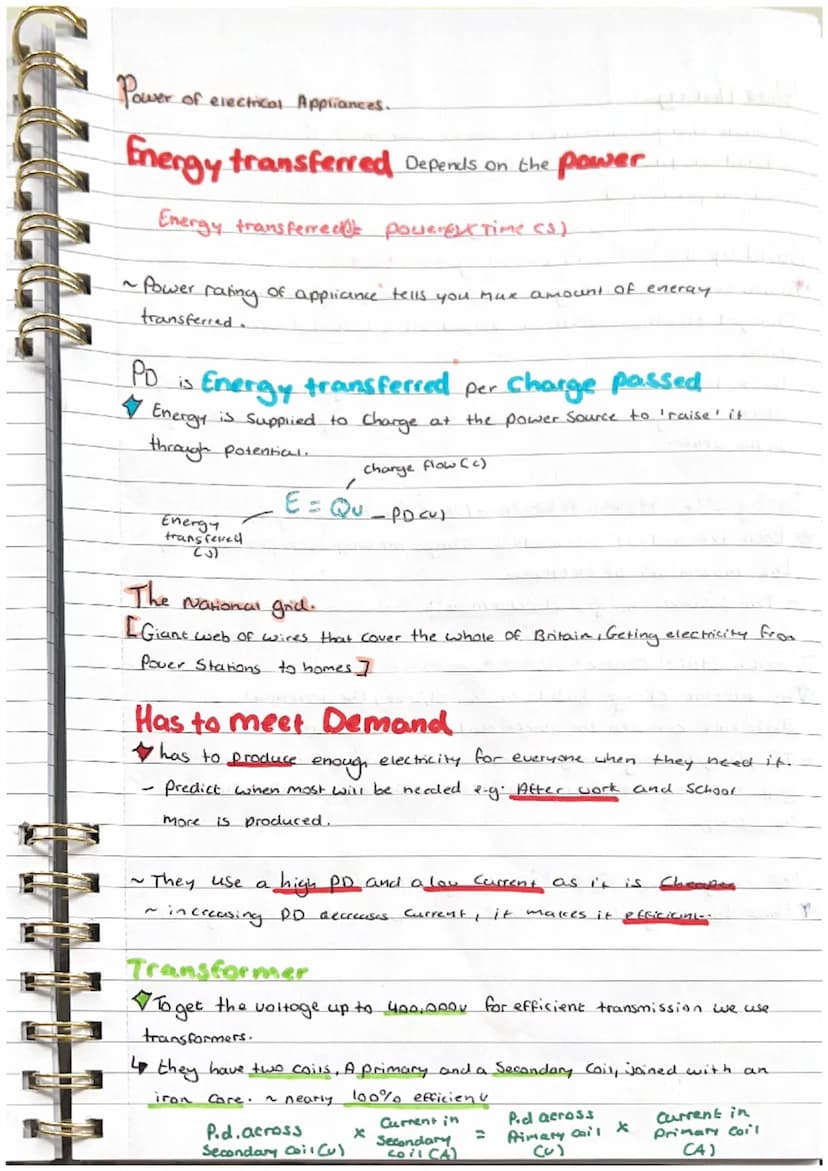 Power of electrical Appliances.
Energy transferred Depends on the power
Energy transferred(J)= power(W)x Time (s)
~ Power rating of appliance tells you max amount of energy
transferred.
PD is Energy transferred per Charge passed
Energy is Supplied to Charge at the power source to 'raise' it
through potential.
charge flow (C)
E = QV - PD (V)
Energy
transfered
(J)
The National grid.
[Giant web of wires that cover the whole of Britain, Geting electricity from
Power Stations to homes]
Has to meet Demand
has to produce enough electricity for everyone when they need it.
- Predict when most will be needed e.g. After work and School
more is produced.
~ They use a high PD and a low current as it is Cheaper
~ increasing PD decreases current, it makes it efficient.
Transformer
To get the voltage up to 400,000v for efficient transmission we use
transformers.
↳ they have two coils, A primary and a Secondary Coil, joined with an
iron core. ~ nearly 100% efficient
P.d. across Secondary Coil (V) x Current in Secondary coil (A) = P.d across Primary coil (V) x Current in Primary coil (A)